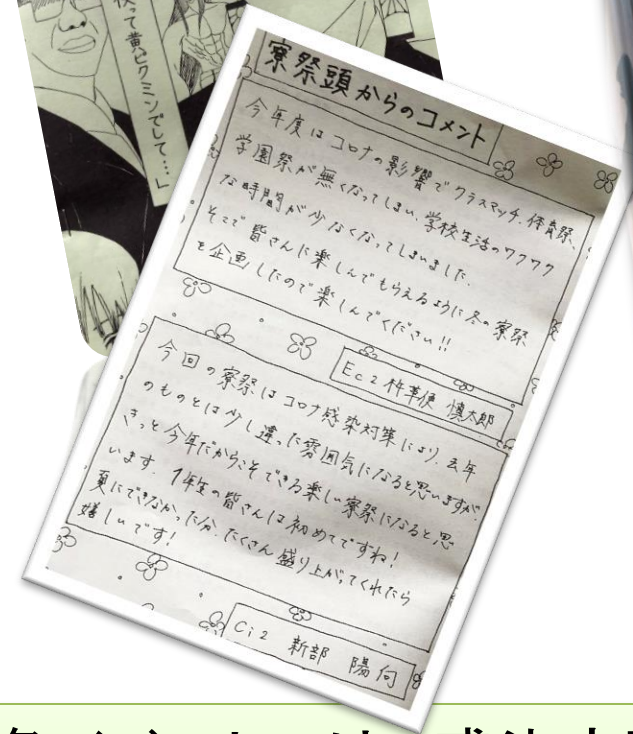 寮祭頭からのコメント
今年度はコロナの影響でクラスマッチ、体育祭、
学園祭が無くなってしまい、学校生活のワクワク
な時間が少なくなってしまいました。
そこで皆さんに楽しんでもらえるように冬の寮祭
を企画したので楽しんでください!!
Ec2 慎太郎
今回の寮祭はコロナ感染対策により、去年
のものとは少し違った雰囲気になると思いますが、
きっと今年だからこそできる楽しい寮祭になると思
います。1年生の皆さんは初めてですね!
夏にできなかった分、たくさん盛り上がってくれたら
嬉しいです!
Ci2 新部 陽向
って黄ピクミンでして…」